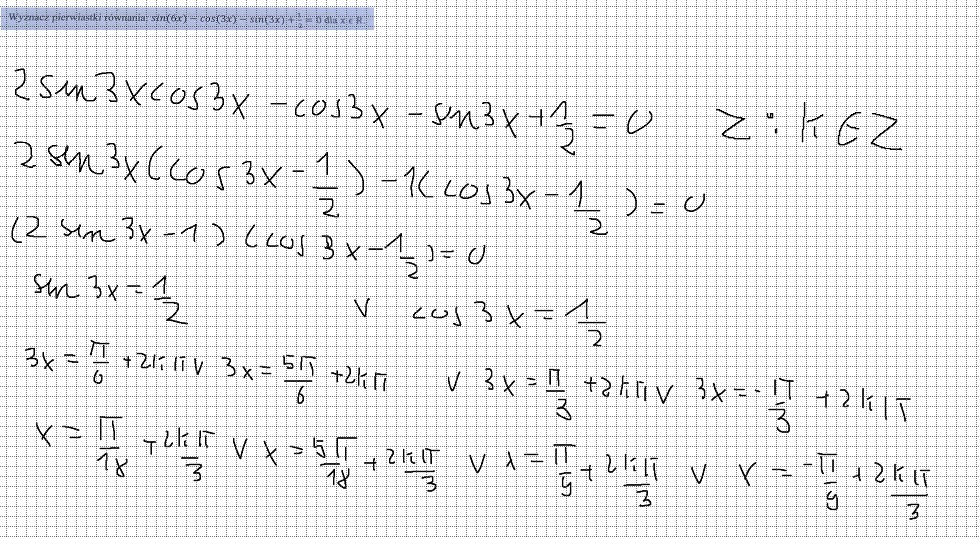 Wyznacz pierwiastki równania: sin(6x) − cos(3x) − sin(3x) + 1/2 = 0 dla x ϵ R.
2sin3xcos3x - cos3x - sin3x + 1/2 = 0 Z: k ∈ Z
2sin3x(cos3x - 1/2) - 1(cos3x - 1/2) = 0
(2sin3x - 1)(cos3x - 1/2) = 0
sin3x = 1/2 ∨ cos3x = 1/2
3x = π/6 + 2kπ ∨ 3x = 5π/6 + 2kπ ∨ 3x = π/3 + 2kπ ∨ 3x = -π/3 + 2kπ
x = π/18 + 2kπ/3 ∨ x = 5π/18 + 2kπ/3 ∨ x = π/9 + 2kπ/3 ∨ x = -π/9 + 2kπ/3